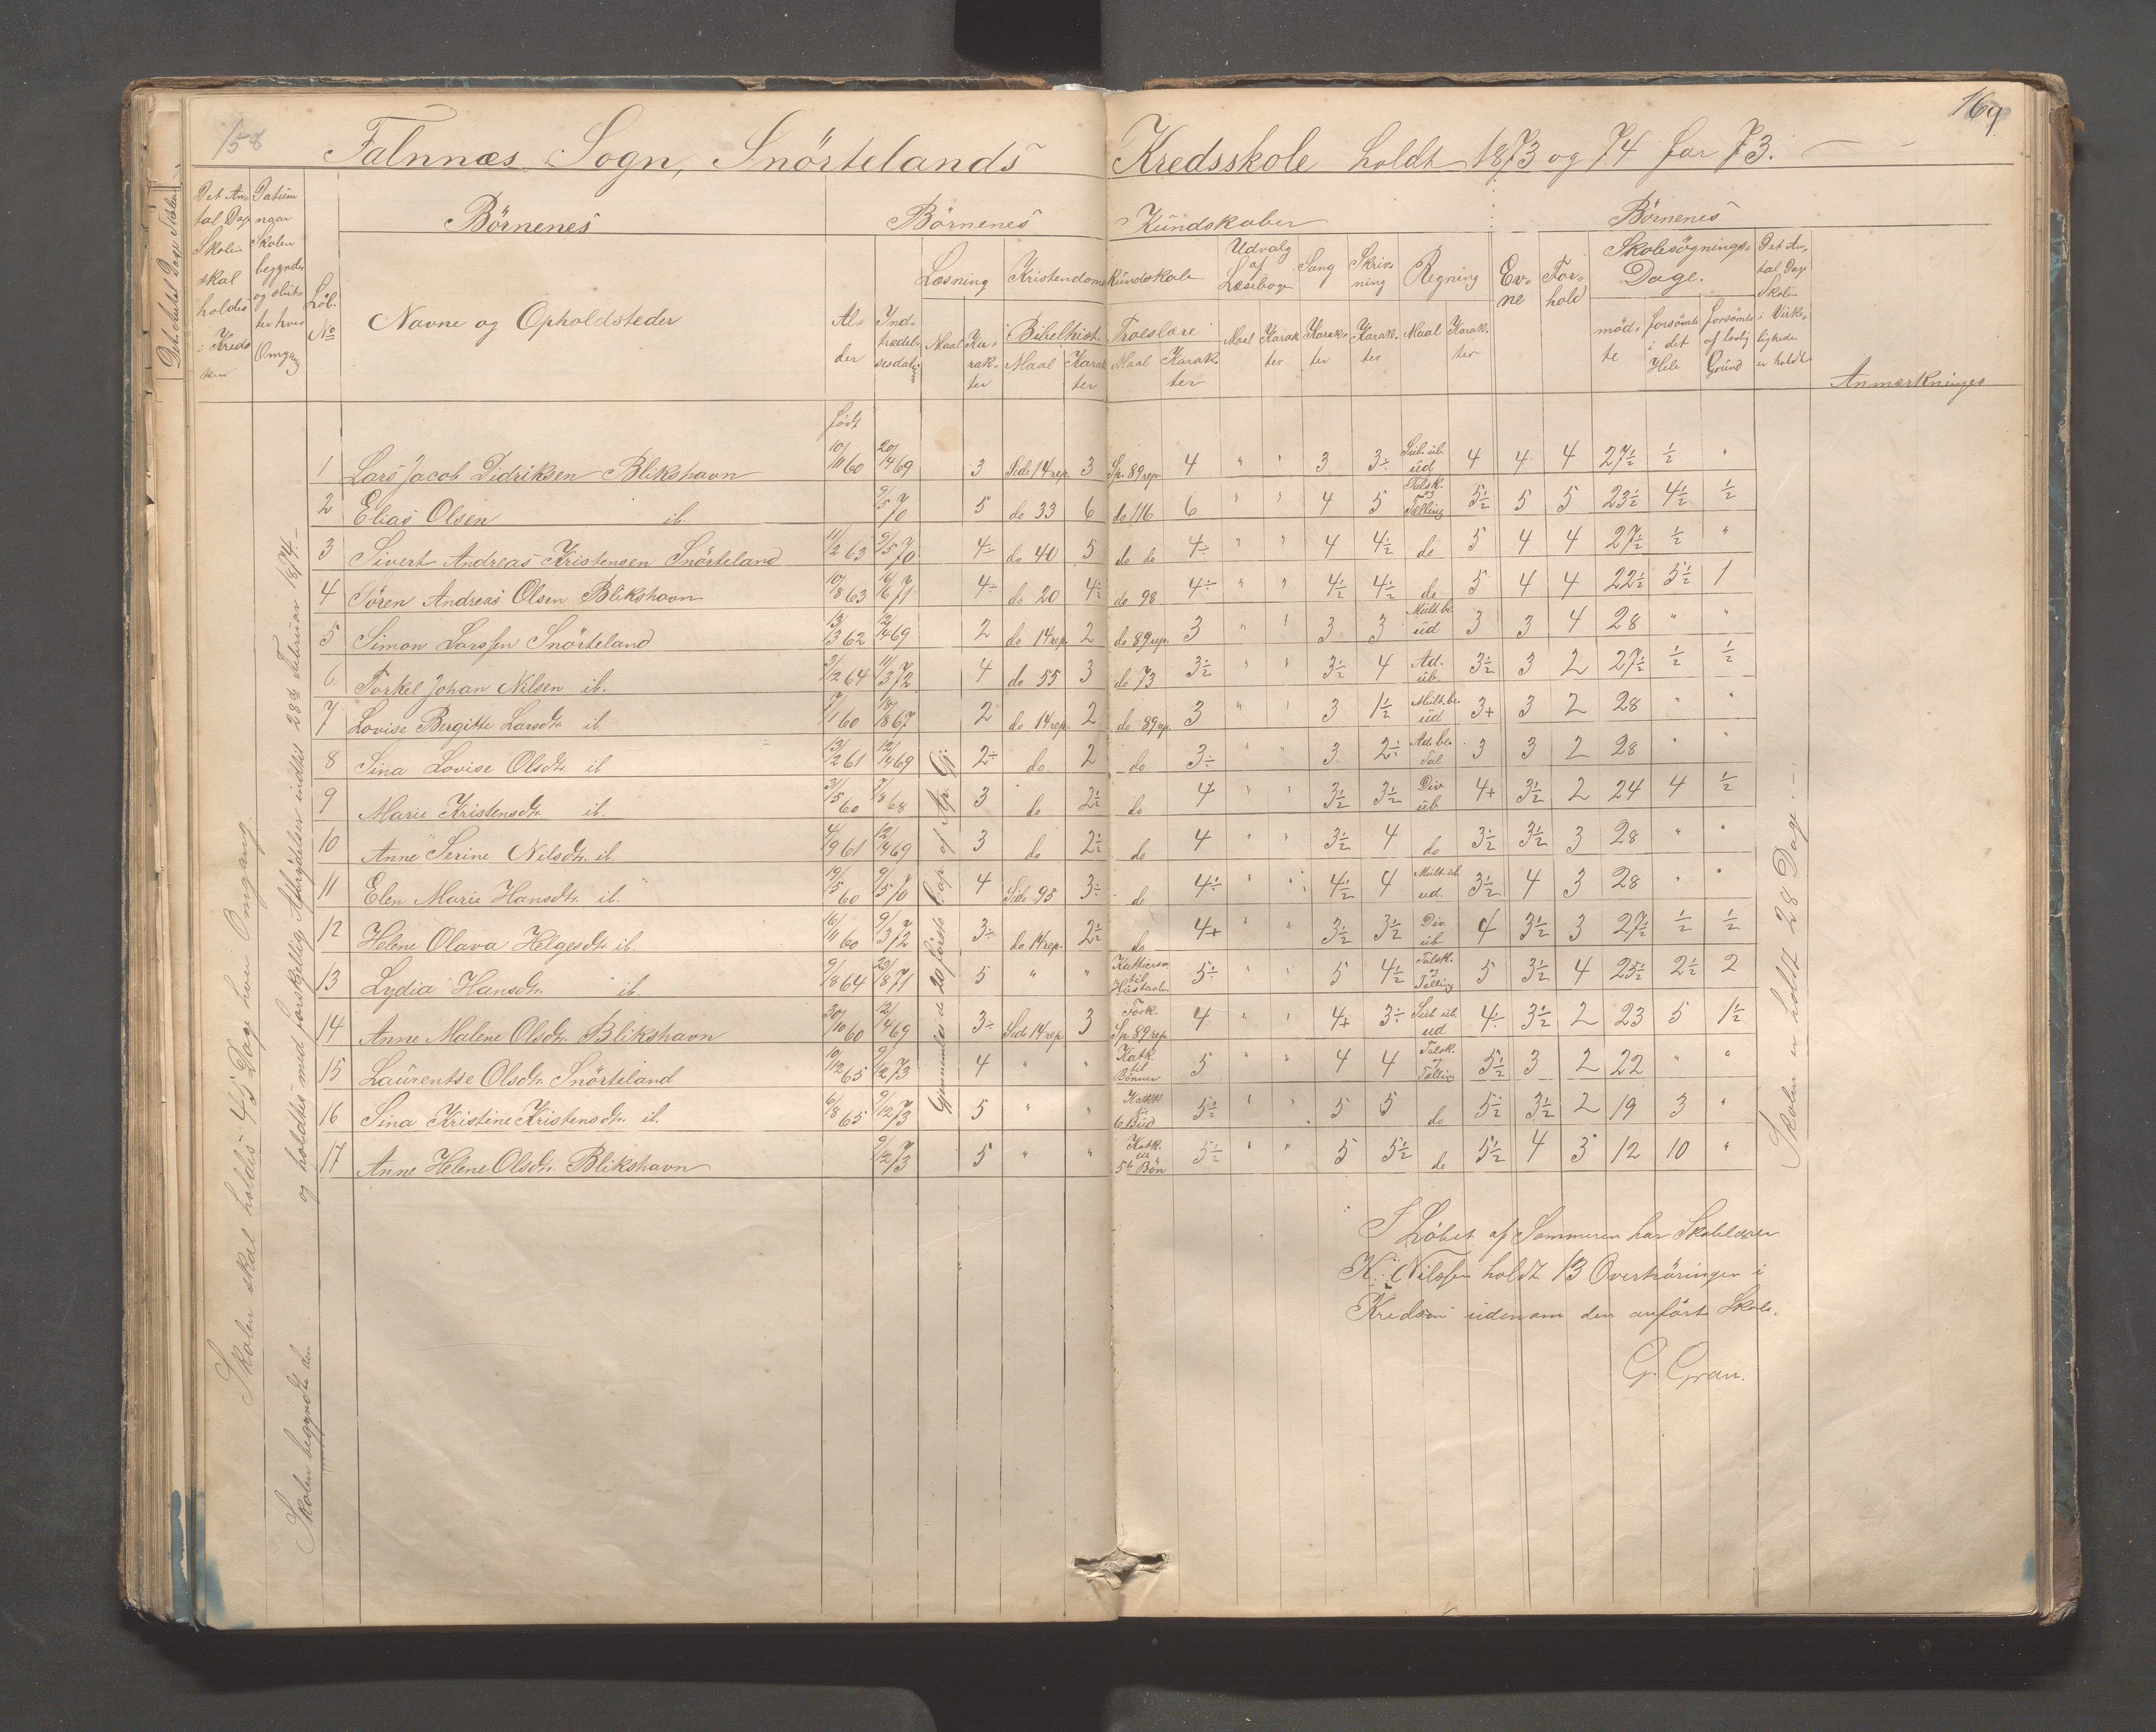 158
169
Falnnæs Sogn, Snörtelands Kredsskole holdt 1873 og 74 for 73.
Det Antal Dage Skolen skal holdes i Kredsen
Datum naar Skolen begynder og slutter hver Omgang
Löb. No
Börnenes
Navne og Opholdsteder
Alder
Indtrædelsesdatum
Börnenes Kundskaber
Læsning
Maal Karakter
Kristendoms Kundskab
Bibelhist. Maal Karakter
Troeslære Maal Karakter
Udvalg af Læsebogen Maal Karakter
Sang Karakter
Skrivning Karakter
Regning Maal Karakter
Evne
Forhold
Börnenes
Skolesögnings Dage.
mödte
forsömte i det Hele
forsömte af lovlig Grund
Det Antal Dage Skolen i Virkeligheden er holdt
Anmærkninger
födt
1 Lars Jacob Didriksen Blikshavn 10/11 60 20/14 69 3 Side 14 rep. 3 Sp. 89 rep 4 " " 3 3÷ Sub. ub. ud 4 4 4 27½ ½ "
2 Elias Olsen ib. 9/5 70 5 do 33 6 do 116 6 " " 4 5 Talsk. og Tælling 5½ 5 5 23½ 4½ ½
3 Sivert Andreas Kristensen Snörteland 11/2 63 9/5 70 4÷ do 40 5 do do 4÷ " " 4 4½ do 5 4 4 27½ ½ "
4 Sören Andreas Olsen Blikshavn 10/8 63 16/6 71 4÷ do 20 4½ do 98 4÷ " " 4½ 4½ do 5 4 4 22½ 5½ 1
5 Simon Larssen Snörteland 13/3 62 12/14 69 2 do 14 rep. 2 do 89 rep. 3 " " 3 3 Mult. be. ud 3 3 4 28 " "
6 Torkel Johan Nilsen ib. 3/12 64 11/3 72 4 do 55 3 do 73 3½ " " 3½ 4 Ad. ub. 3½ 3 2 27½ ½ ½
7 Lovise Bergitte Larsdtr. ib. 7/1 60 18/8 67 2 do 14 rep. 2 do 89 rep. 3 " " 3 1½ Mult. be. ud 3+ 3 2 28 " "
8 Sina Lovise Olsdtr. ib 13/2 61 12/14 69 2÷ do 2 do 3÷ " " 3 2÷ Ad. be. Tal 3 3 2 28 " "
9 Marie Kristensdtr. ib. 31/5 60 7/8 68 3 do 2½ do 4 " " 3½ 3½ Div. ub 4+ 3½ 2 24 4 ½
10 Anne Serine Nilsdtr. ib. 4/9 61 12/14 69 3 do 2½ do 4 " " 3½ 4 do 3½ 3½ 3 28 " "
11 Elen Marie Hansdtr. ib. 19/5 60 9/5 70 4 Side 95 3÷ do 4÷ " " 4½ 4 Mult. ub. ud. 3½ 4 3 28 " "
12 Helene Olava Helgesdtr. ib 16/11 60 9/3 72 3÷ do 14 rep. 2½ do 4+ " " 3½ 3½ Div. ub 4 3½ 3 27½ ½ ½
13 Lydia Hansdtr. ib. 9/8 64 23/8 71 5 " " til Hustavlen 5÷ " " 5 4½ Talsk. og Tælling 5 3½ 4 25½ 2½ 2
14 Anne Malene Olsdtr. Blikshavn 30/10 60 12/14 69 3÷ Side 14 rep 3 Fork. Sp. 89 rep 4 " " 4+ 3÷ Sub. ub. ud 4÷ 3½ 2 23 5 1½
15 Laurentse Olsdtr. Snörteland 10/12 65 9/12 73 4 " " Katk. til Bönner 5 " " 4 4 Talsk. og Tælling 5½ 3 2 22 " "
16 Sina Kristine Kristensdtr. ib. 6/8 65 9/12 73 5 " " Katk. til 6 Bud 5½ " " 5 5 do 5½ 3½ 2 19 3 "
17 Anne Helene Olsdtr. Blikshavn 9/12 73 5 " " Katk. til 5te Bön 5½ " " 5 5½ do 5½ 4 3 12 10 "
Skolen skal holdes 45 Dage hver Omgang
Skolen begyndte den
og holdtes med forskjellig Afbrydelser indtil 28de Februar 1874.
Gjennemlæst de 20 förste Cap. af Ap. Gj.
Skolen er holdt 28 Dage.
I Löbet af Sommeren har Skolelærer
K. Nilssen holdt 13 Overhöringer i
Kredsen udenom den anfört Skole.
G. Gran.